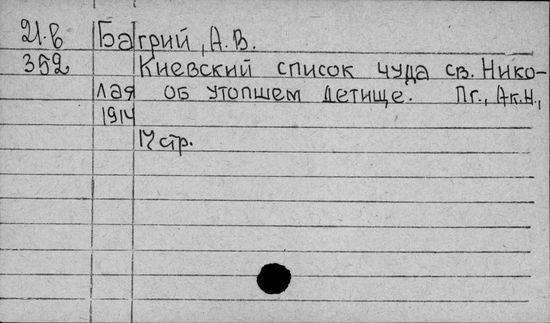 21.в Багрий, А.В.
352 Киевский список чуда св. Нико-
лая об утопшем детище. Пг., Ак.Н.,
1914
17 стр.